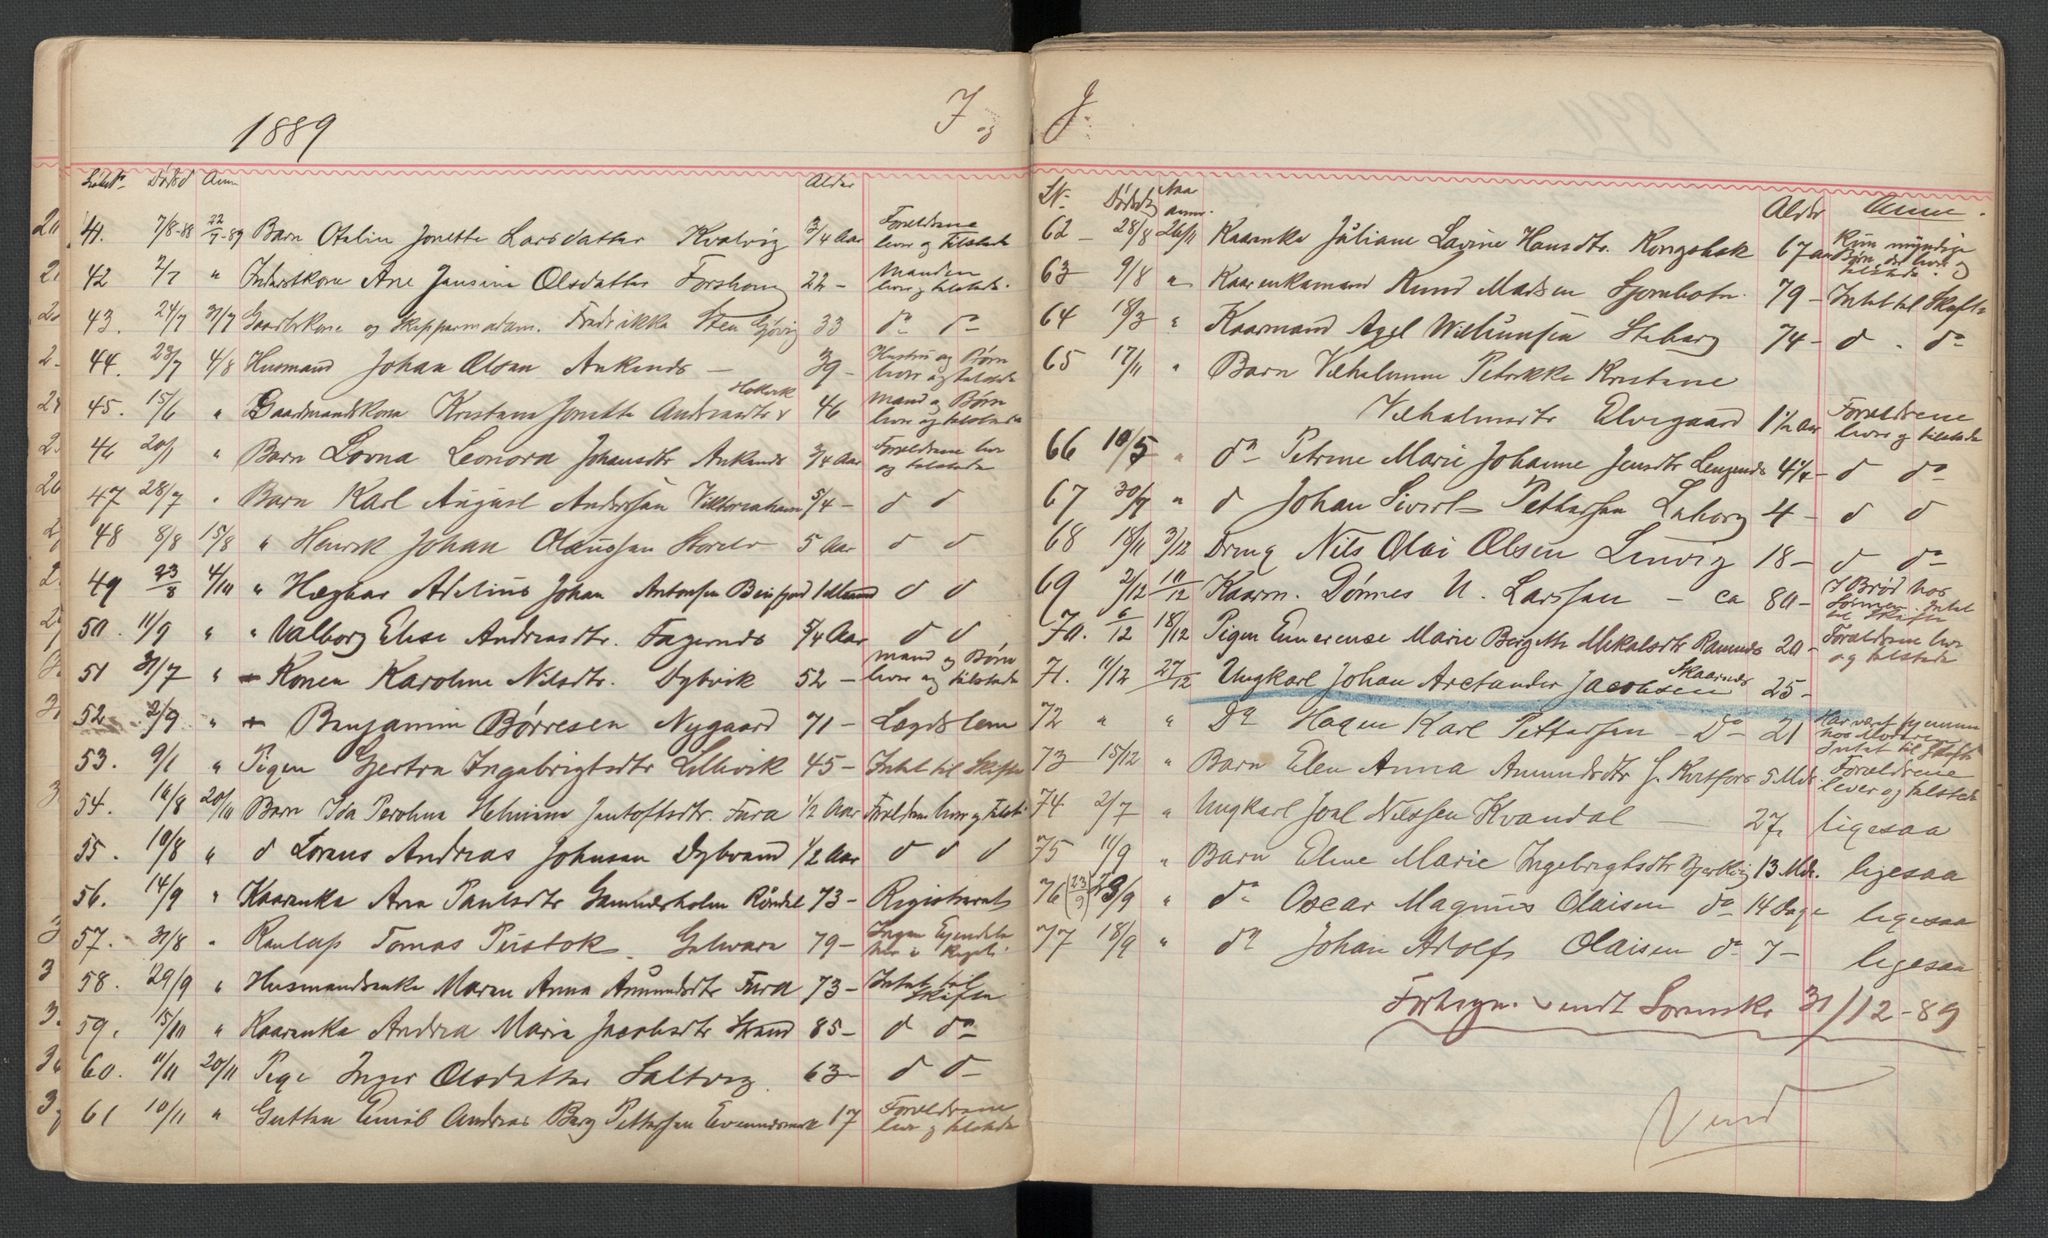 1889
Døds d Anm Alder
41. 7/8-88 22/7-89 Barn Otelie Jonette Larsdatter Kvalvig 3/4 Aar Forældrene
lever og tilstede
42 2/7 " Inderstkone Ane Jensine Olsdatter 22 - Manden
lever og tilstede.
43. 24/7 31/7 Gaardbr.kone og Skippermadam. Fredrikke Sten Gjøvig 33 do do
44. 23/7 4/8 Husmand Johan Olsen Ankenes - 39 - Hustru og Børn
lever og tilstede
45. 15/6 " Gaardmandskone Kristene Jonette Andreasdtr 46 Mand og Børn
lever og tilstede
46 20/1 " Barn Lovna Leonora Johansdtr Ankenes 3/4 Aar Forældrene lev
og tilstede
47 28/7 " Barn Karl August Andersen Viktoriahavn 5/4 - d d
48 8/8 15/8 " Henrik Johan Olaussen 5 Aar d d
49 23/8 4/10 " Hægbar Adelius Johan Antonsen Beisfjord d d
50. 11/9 " " Valborg Elise Andreasdtr. Fagernes 5/4 Aar d d
51 31/7 " Konen Karoline Nilsdtr. Dybvik 52 - mand og Børn
lever og tilstede
52. 2/9 " Benjamin Børresen Nygaard 71 - Lægdslem
53. 9/1 " Pigen Gjertra Ingebrigtsdtr Lillevik 45 - Intet til Skifte
54. 10/8 20/10 Barn Ida Perolina Helmine Jentoftsdtr. Fura 1/2 Aar Forældrene lever og tilst
55. 10/8 " d Lorens Andreas Johnsen Dybvand 1/2 Aar d d d
56. 14/9 " Kaarenke Ana Paulsdtr 73 - Registreret
57. 31/8 " Tomas 79 - Ingen Eiendele
58. 29/9 " Husmandsenke Maren Anna Amundsdtr Fura 73 - Intet til
Skifte
59. 15/10 " Kaarenke Andrea Marie Jacobsdtr Strand 85 - d do
60. 11/11 20/11 Pige Inger Olsdatter Saltvig. 63 - d d
61 10/11 " Gutten Emil Andreas Berg Pettersen Evenesmark 17 Forældrene
lever og tilstede
I og J.
Alder Anm.
62 - 28/8 26/11 Kaarenke Juliane Lavine Hansdtr. Kongsbak 67 aar Kun myndige
Børn, der lever og
tilstede.
63 - 9/8 " Kaarenkemand Knud Madsen 79 - Intet til Skifte
64 18/3 " Kaarmand Axel Steberg 74 - d . do
65 17/11 " Barn Vilhelmine Petrikke Kristine
Vilhelmsdtr Elvegaard 1 1/2 Aar Forældrene
lever og tilstede
66 10/5 " do Petrine Marie Johanne Jensdtr Lengenes 4 1/4 - d do
67 30/7 " d Johan Sivert Pettersen Laberg 4 - d d
68 18/11 3/12 Dreng Nils Olai Olsen Lenvig 18 - d do
69 2/12 10/12 Kaarm. Dønnes N. Larssen - ca 80 - I Brød hos
Sønnen. Intet
til Skifte
70. 6/12 18/12 Pigen Emerense Marie Bergette Mikalsdtr Ramnes 20 - Forældrene lev
og tilstede
71. 11/12 27/12 Ungkarl Johan Arctander Jacobsen Skaanes 25 -
72 " " Do Hagen Karl Pettersen - do - 21 Har været hjemme
hos Moderen
Intet til Skifte
73 15/12 " Barn Elen Anna Amundsdtr S. Kvitfors 5 Mdr. Forældrene
lever og tilstede
74. 2/7 " Ungkarl Joel Nilssen Kvandal - 27, ligesaa
75 11/9 " Barn Eline Marie Ingebrigtsdtr Bjerkvig 13 Mdr. ligesaa
76 (23/9) 23/9 " do Oscar Magnus Olaisen do 14 Dage ligesaa
77 18/9 " do Johan Adolf Olaisen do 7 - ligesaa
Fortegn. sendt Sorensk. 31/12-89
Vend